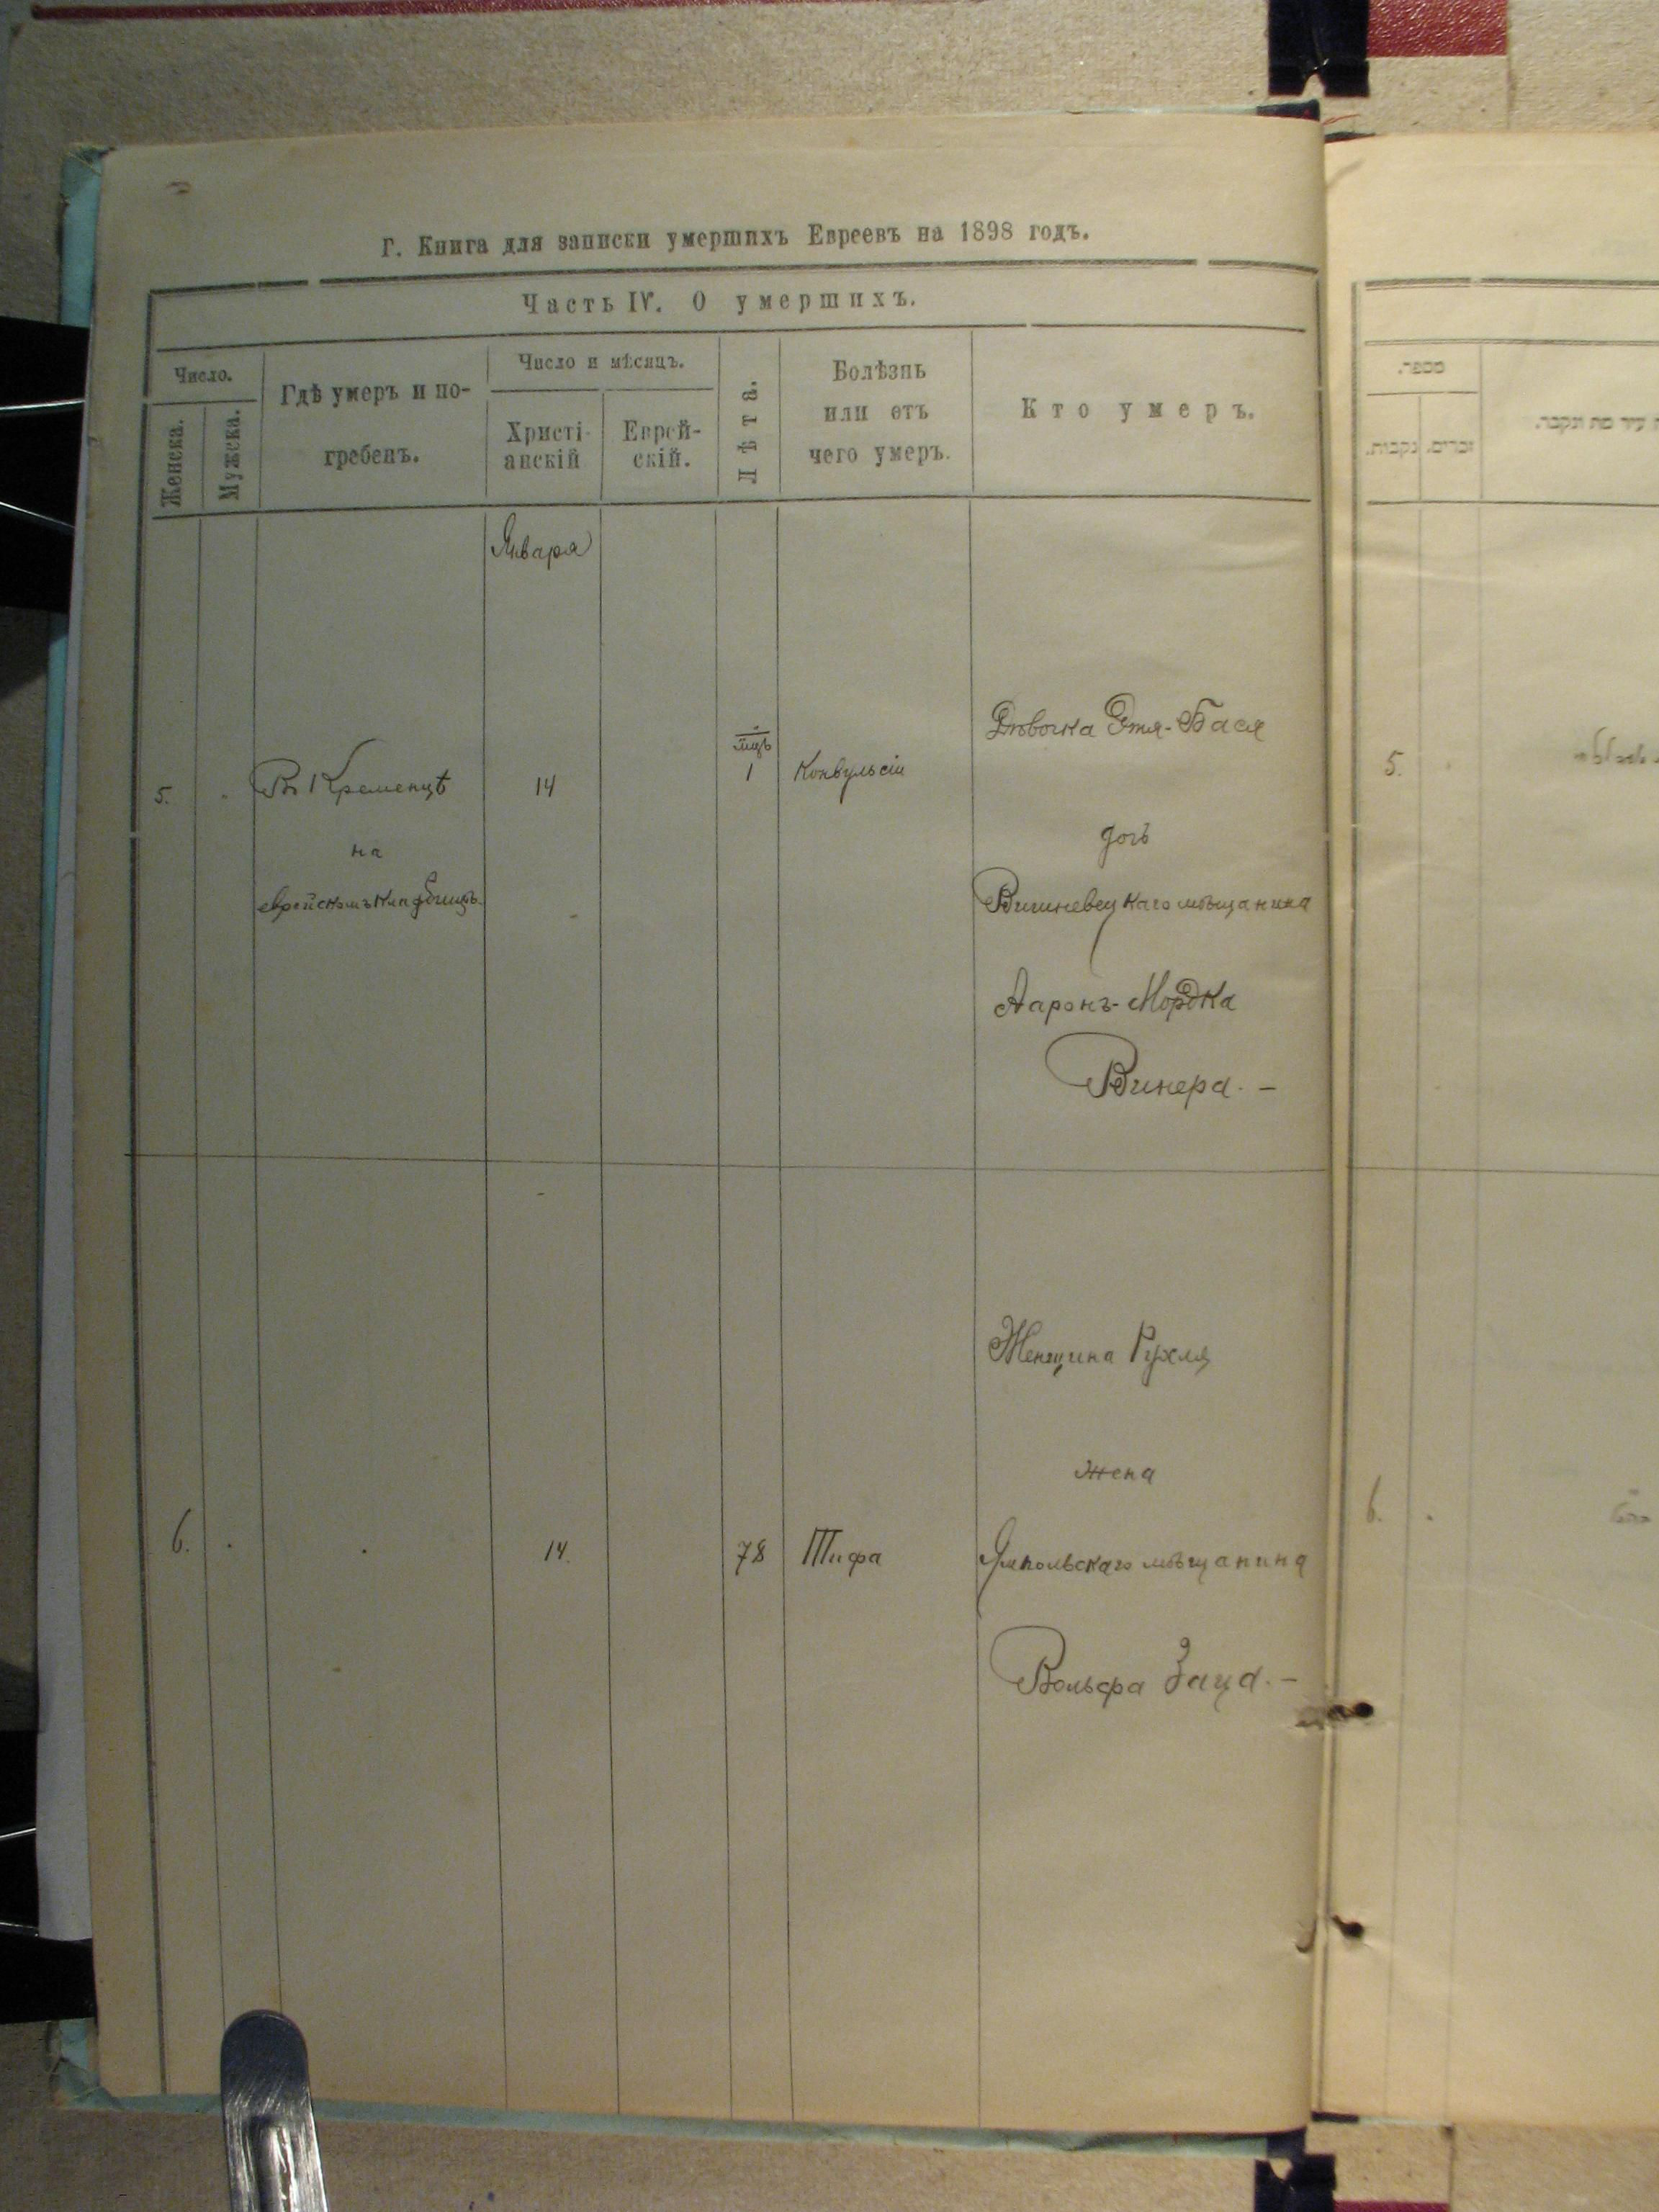 Г. Книга для записки умершихъ Евреевъ на 1898 годъ.
Часть IV. О умершихъ.
Число.
Женска.
Мужска.
Гдѣ умеръ и по-
гребенъ.
Число и мѣсяцъ.
Христі-
анскій
Еврей-
скій.
Лѣта.
Болѣзнь
или отъ
чего умеръ.
Кто умеръ.
Января
5.
Въ Кременцѣ
на
еврейскомъ кладбищѣ.
14
мцъ
1
Конвульсіи
Дѣвочка Этя-Бася
дочь
Вишневецкаго мѣщанина
Ааронъ-Мордка
Винера. –
6.
14.
78
Тифа
Женщина Рухля
жена
Ямпольскаго мѣщанина
Вольфа Заца. –
מספר.
זכרים.
נקבות.
עיר מת ונקבר.
5.
6.